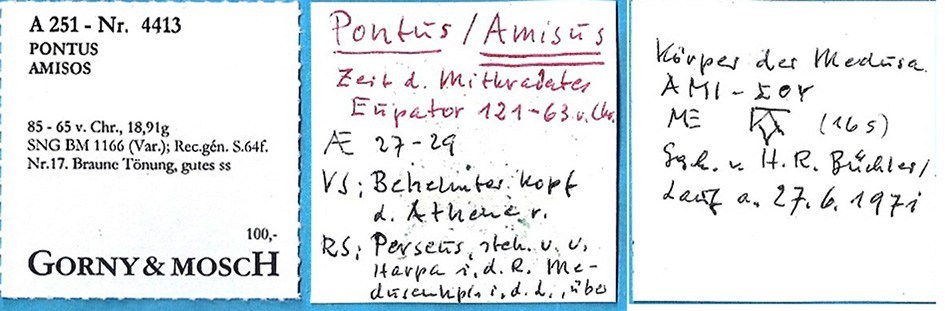 A 251 - Nr. 4413
PONTUS
AMISOS
85 - 65 v. Chr., 18,91g
SNG BM 1166 (Var.); Rec.gén. S.64f.
Nr.17. Braune Tönung, gutes ss
100,-
GORNY & MOSCH
Pontus / Amisus
Zeit d. Mithradates
Eupator 121-63 v. Chr.
Æ 27-29
VS: Behelmter Kopf
d. Athena r.
RS: Perseus, steh. v. v.
Harpa i. d. R. Me-
dusenkpf. i. d. L., über
Körper der Medusa
AMI - ΣOY
ME (16 s)
v. H. R. Büchler /
Lauf a. 27.6.1971